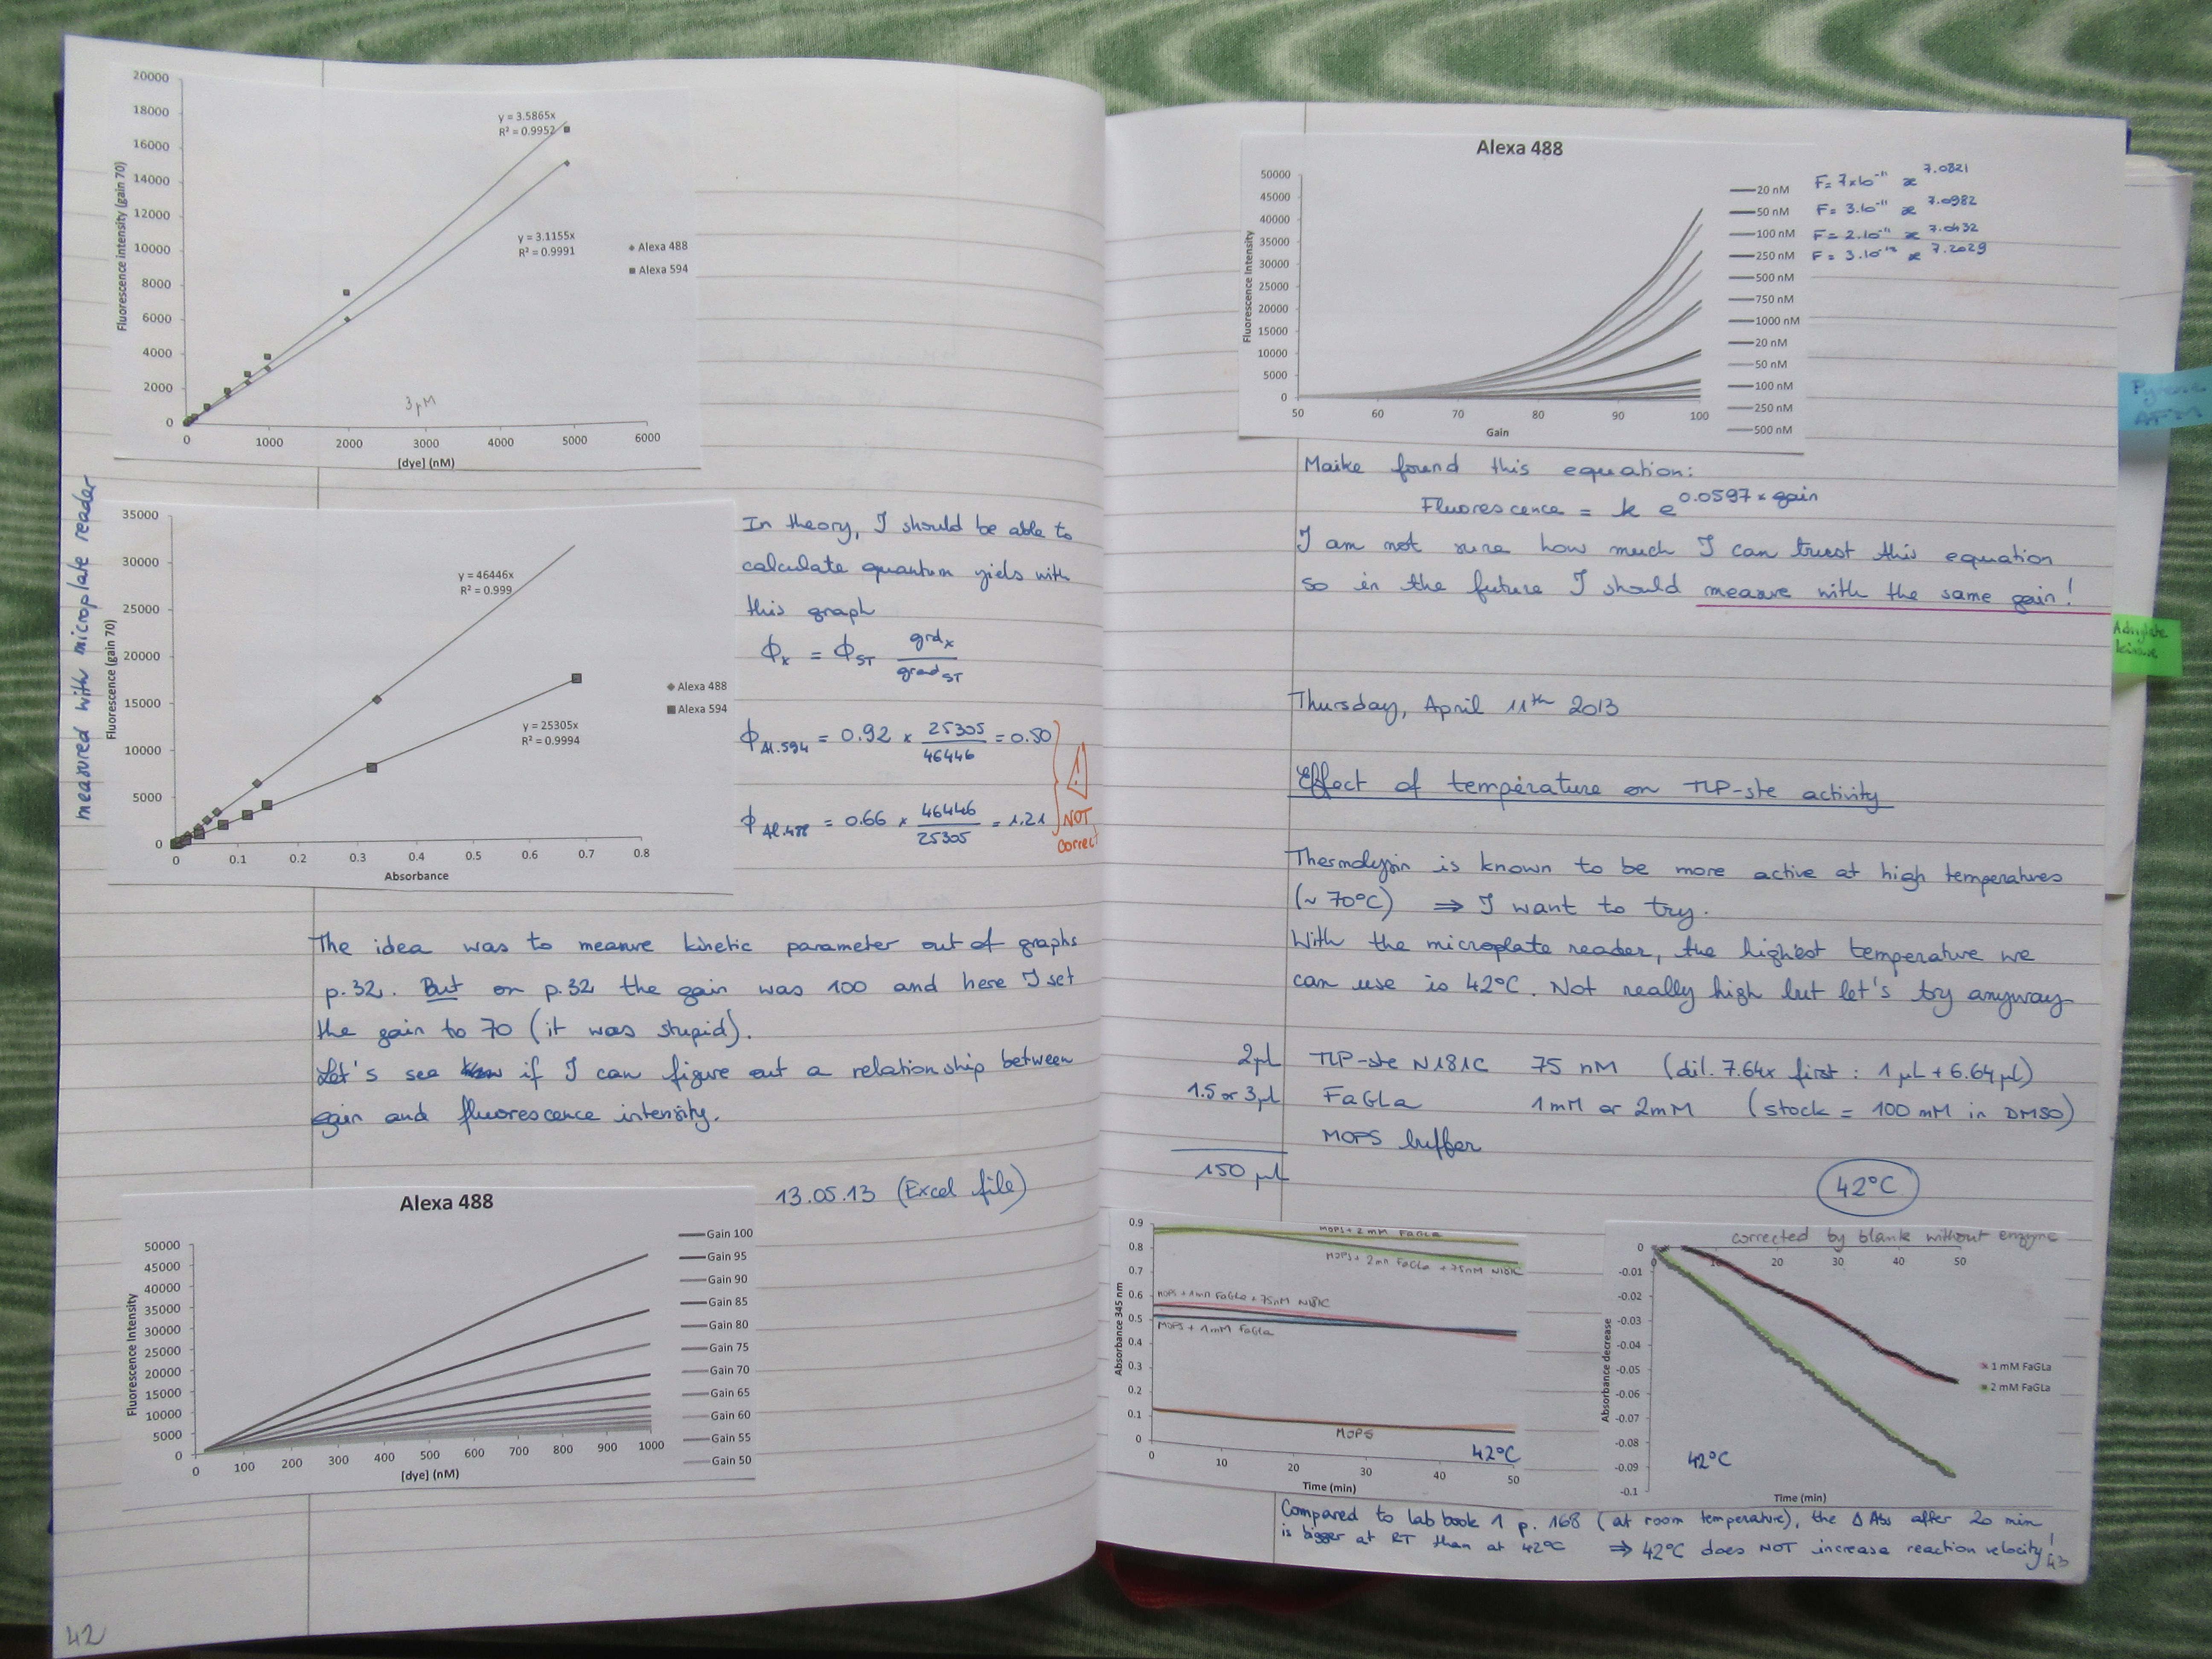 20000
18000
16000
14000
12000
10000
8000
6000
4000
2000
0
Fluorescence intensity (gain 70)
y = 3.5865x
R² = 0.9952
y = 3.1155x
R² = 0.9991
Alexa 488
Alexa 594
3 µM
0 1000 2000 3000 4000 5000 6000
[dye] (nM)
measured with microplate reader
35000
30000
25000
20000
15000
10000
5000
0
Fluorescence (gain 70)
y = 46446x
R² = 0.999
y = 25305x
R² = 0.9994
Alexa 488
Alexa 594
0 0.1 0.2 0.3 0.4 0.5 0.6 0.7 0.8
Absorbance
In theory, I should be able to
calculate quantum yiels with
this graph
ϕx = ϕST grdx / gradST
ϕAl.594 = 0.92 × 25305 / 46446 = 0.50
ϕAl.488 = 0.66 × 46446 / 25305 = 1.21
!
NOT
correct
The idea was to measure kinetic parameter out of graphs
p.32. But on p.32 the gain was 100 and here I set
the gain to 70 (it was stupid).
Let's see if I can figure out a relationship between
gain and fluorescence intensity.
13.05.13 (Excel file)
Alexa 488
50000
45000
40000
35000
30000
25000
20000
15000
10000
5000
0
Fluorescence Intensity
Gain 100
Gain 95
Gain 90
Gain 85
Gain 80
Gain 75
Gain 70
Gain 65
Gain 60
Gain 55
Gain 50
0 100 200 300 400 500 600 700 800 900 1000
[dye] (nM)
42
Alexa 488
50000
45000
40000
35000
30000
25000
20000
15000
10000
5000
0
Fluorescence Intensity
50 60 70 80 90 100
Gain
20 nM
50 nM
100 nM
250 nM
500 nM
750 nM
1000 nM
20 nM
50 nM
100 nM
250 nM
500 nM
F = 7×10⁻¹¹ x^7.0321
F = 3.10⁻¹¹ x^7.0982
F = 2.10⁻¹¹ x^7.0432
F = 3.10⁻¹² x^7.2029
Maike found this equation:
Fluorescence = k e^0.0597 × gain
I am not sure how much I can trust this equation
so in the future I should measure with the same gain!
Thursday, April 11th 2013
Effect of temperature on TLP-ste activity
Thermolysin is known to be more active at high temperatures
(~ 70°C) ⇒ I want to try.
With the microplate reader, the highest temperature we
can use is 42°C. Not really high but let's try anyway
2µL TLP-ste N181C 75 nM (dil. 7.64x first : 1 µL + 6.64 µL)
1.5 or 3µL FaGLa 1mM or 2mM (stock = 100 mM in DMSO)
MOPS buffer
150 µL
42°C
0.9
0.8
0.7
0.6
0.5
0.4
0.3
0.2
0.1
0
Absorbance 345 nm
MOPS + 2 mM FaGLa
MOPS + 2mM FaGLa + 75nM N181C
MOPS + 1mM FaGLa + 75nM N181C
MOPS + 1mM FaGLa
MOPS
42°C
0 10 20 30 40 50
Time (min)
corrected by blank without enzyme
0 10 20 30 40 50
0
-0.01
-0.02
-0.03
-0.04
-0.05
-0.06
-0.07
-0.08
-0.09
-0.1
Absorbance decrease
1 mM FaGLa
2 mM FaGLa
42°C
Time (min)
Compared to lab book 1 p. 168 (at room temperature), the Δ Abs after 20 min
is bigger at RT than at 42°C ⇒ 42°C does NOT increase reaction velocity!
43
Adenylate
kinase